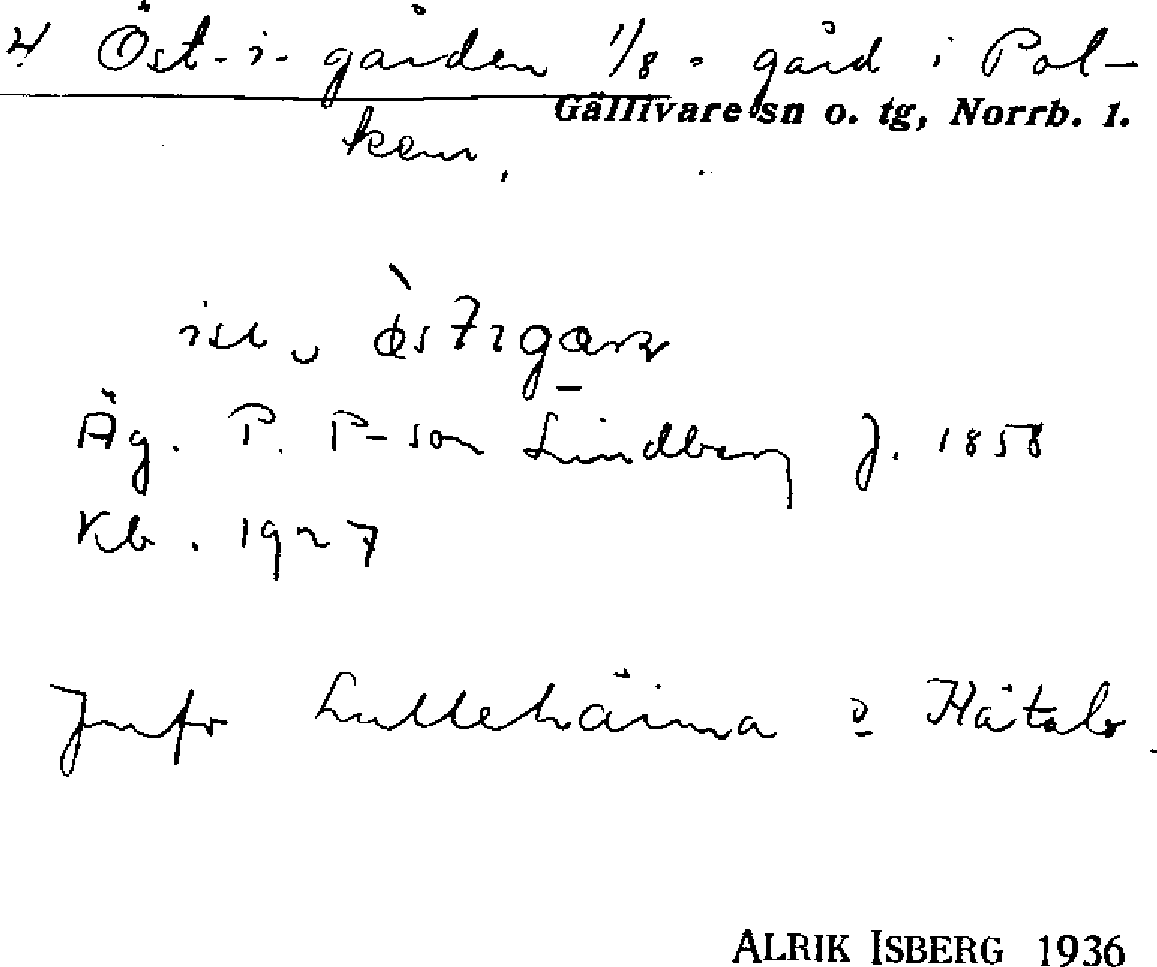 4 Öst-i-gården 1/8 o gård i Pol-
Gällivare sn o. tg, Norrb. l.
ken.
Äg. P. P-son Lindberg f. 1858
Kb. 1927
Jmfr Lullehäima o
ALRIK ISBERG 1936